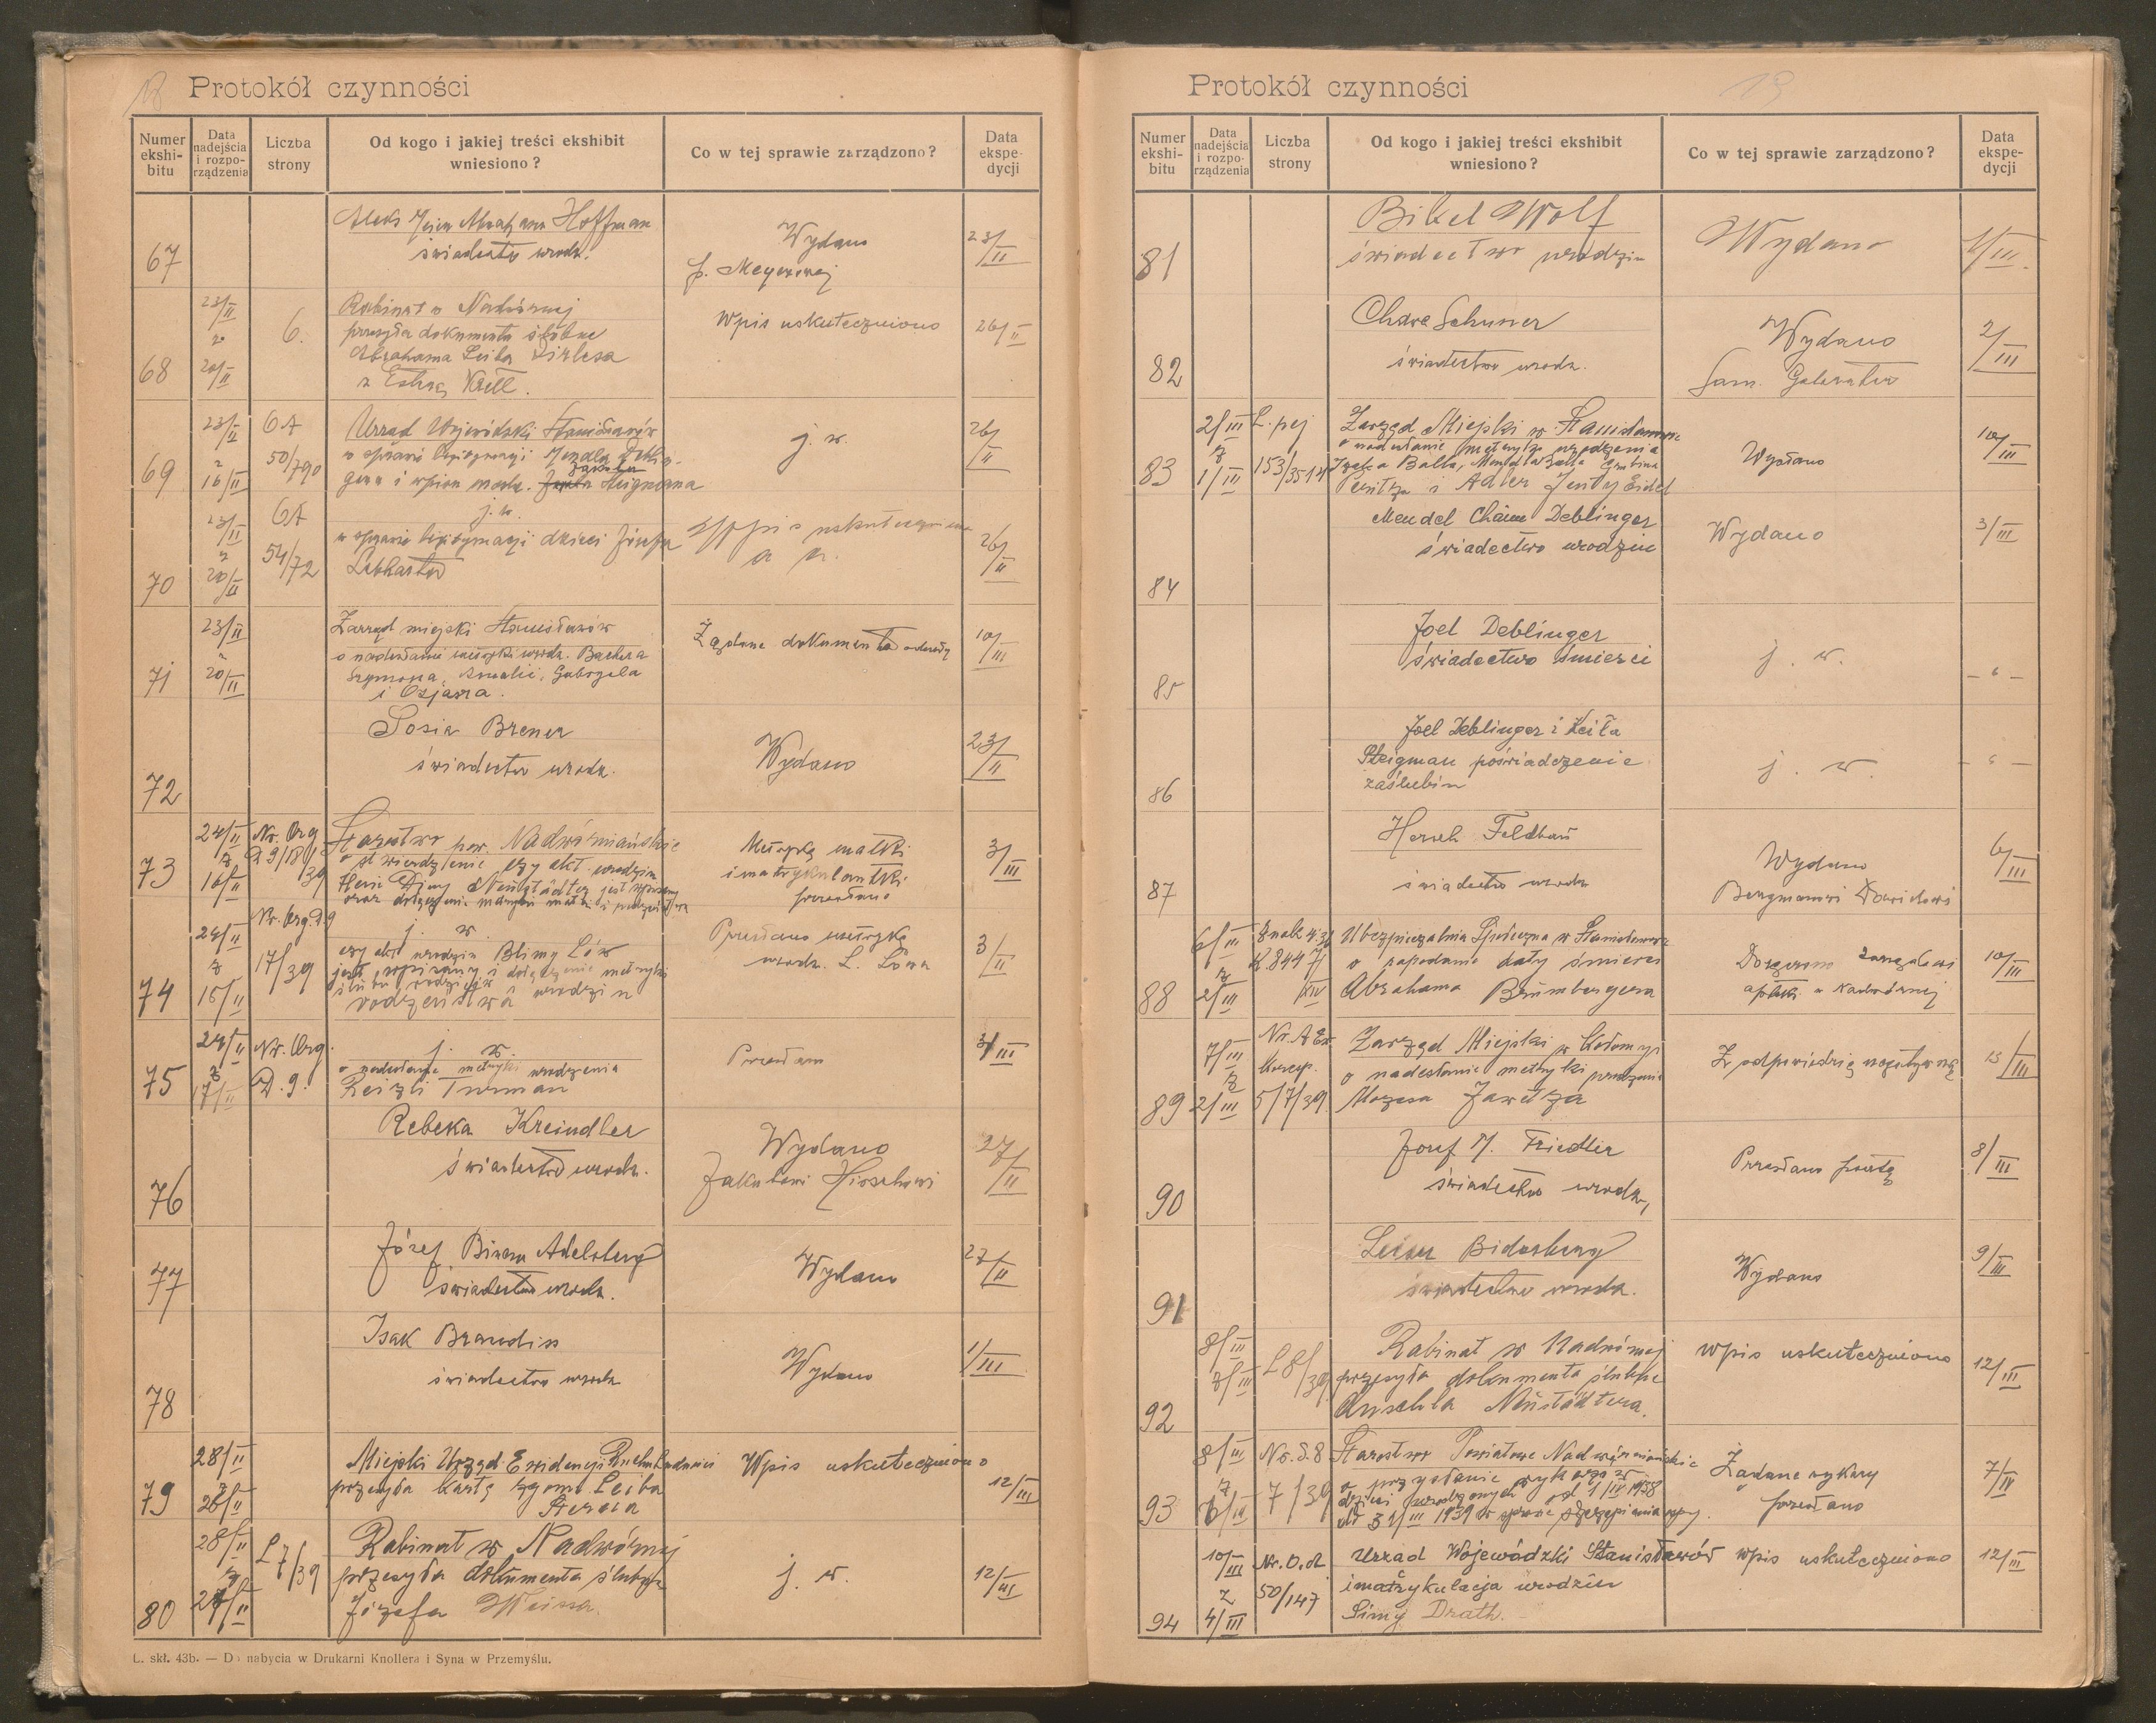 18 Protokół czynności
Numer ekshi- bitu
Data nadejścia i rozpo- rządzenia
Liczba strony
Od kogo i jakiej treści ekshibit wniesiono?
Co w tej sprawie zarządzono?
Data ekspe- dycji
67 Abraham Hoffman Wydano 23/II
świadectwo urodz.
23/II Rabinat w Nadwórnej
6. przesyła dokumenta ślubne Wpis uskuteczniono 26/II
Abrahama Leiba
68 20/II z Estrą Krell.
23/II 6A Urząd Wojewódzki Stanisławów j. w. 26/II
50/790 w sprawie legitymacji
69 16/II i wpisu Steigmana
23/II 6A j. w.
54/72 w sprawie legitymacji dzieci Józefa 26/II
70 20/II
23/II Zarząd miejski Stanisławów
o nadesłanie metryki urodz. Bachera Żądane dokumenta 10/III
71 20/II Szymona, Amalii, Gabryela
i Ozjasza.
Sosia Brener 23/II
świadectwo urodz. Wydano
72
24/II Nr. Org Starostwo pow. Nadwórniańskie Metrykę matki 3/III
z D 9/18/39 o stwierdzenie czy akt urodzin i matrykulantki
73 16/II Neustädter jest wpisany przesłano
24/II Nr. Org. D. 9 j. w. Przesłano metrykę 3/II
z 17/39 czy akt urodzin Blimy Löw urodz. L. Löwa
jest wpisany i dołączenie metryki
74 16/II ślubu rodziców
rodzeństwa urodzin
24/II Nr. Org. j. w. Przesłano 3/III
z o nadesłanie metryki urodzenia
75 17/II D. 9. Reizli Turman
Rebeka Kreindler Wydano 27/II
świadectwo urodz. Jakubowi Hirschowi
76
Józef Adelsberg 27/II
77 świadectwo urodz. Wydano
Isak Brandiss 1/III
świadectwo urodz Wydano
78
28/II Miejski Urząd Ewidencji Ruchu Ludności Wpis uskuteczniono 12/III
79 26/II przesyła kartę zgonu Leiba
Sterna
28/II L 7/39 Rabinat w Nadwórnej
z przesyła dokumenta ślubne j. w. 12/III
80 27/II Józefa Weissa.
L. skł. 43b. — Do nabycia w Drukarni Knollera i Syna w Przemyślu.
Protokół czynności 19
Numer ekshi- bitu
Data nadejścia i rozpo- rządzenia
Liczba strony
Od kogo i jakiej treści ekshibit wniesiono?
Co w tej sprawie zarządzono?
Data ekspe- dycji
Bikel Wolf Wydano 1/III.
81 świadectwo urodzin
Chawe 2/III
świadectwo urodz. Wydano
82
2/III L. pej Zarząd Miejski w Stanisławowie 10/III
z o nadesłanie metryk urodzenia Wysłano
83 1/III 153/35 14 Izaka Balla,
i Adler
Mendel Chaim Deblinger Wydano 3/III
świadectwo urodzin
84
Joel Deblinger
świadectwo śmierci j. w. - " -
85
Joel Deblinger i Leiła
Steigman poświadczenie j. w. - " -
86 zaślubin
Hersch Feldhau 6/III
Wydano
87 świadectwo urodz Bergmanowi Dawidowi
6/III Znak 4.36 Ubezpieczalnia Społeczna w Stanisławowie 10/III
K 8447/ o podanie daty śmierci Doręczono
88 2/III XIV Abrahama Brümbergera w Nadwórnej
7/III Nr. A Ew. Zarząd Miejski w Kołomyi
z Koresp. o nadesłanie metryki urodzenia Z odpowiedzią negatywną 13/III
89 2/III 5/7/39. Mozesa
Josef M. Friedler Przesłano pocztą 8/III
90 świadectwo urodz.
Leiser Bidersberg 9/III
świadectwo urodz. Wydano
91
8/III L 8/39 Rabinat w Nadwórnej Wpis uskuteczniono 12/III
z/III przesyła dokumenta ślubne
92 Anschla Neustädtera.
8/III Nr. S. 8 Starostwo Powiatowe Nadwórniańskie Żądane wykazy 7/IV
z 7/39 o przysłanie wykazów przesłano
93 6/III dzieci urodzonych od 1/IV 1938
do 31/III 1939 w sprawie szczepienia ospy.
10/III Nr. O. A. Urząd Wojewódzki Stanisławów wpis uskuteczniono 12/III
z 50/147 imatrykulacja urodzin
94 4/III Simy Drath.